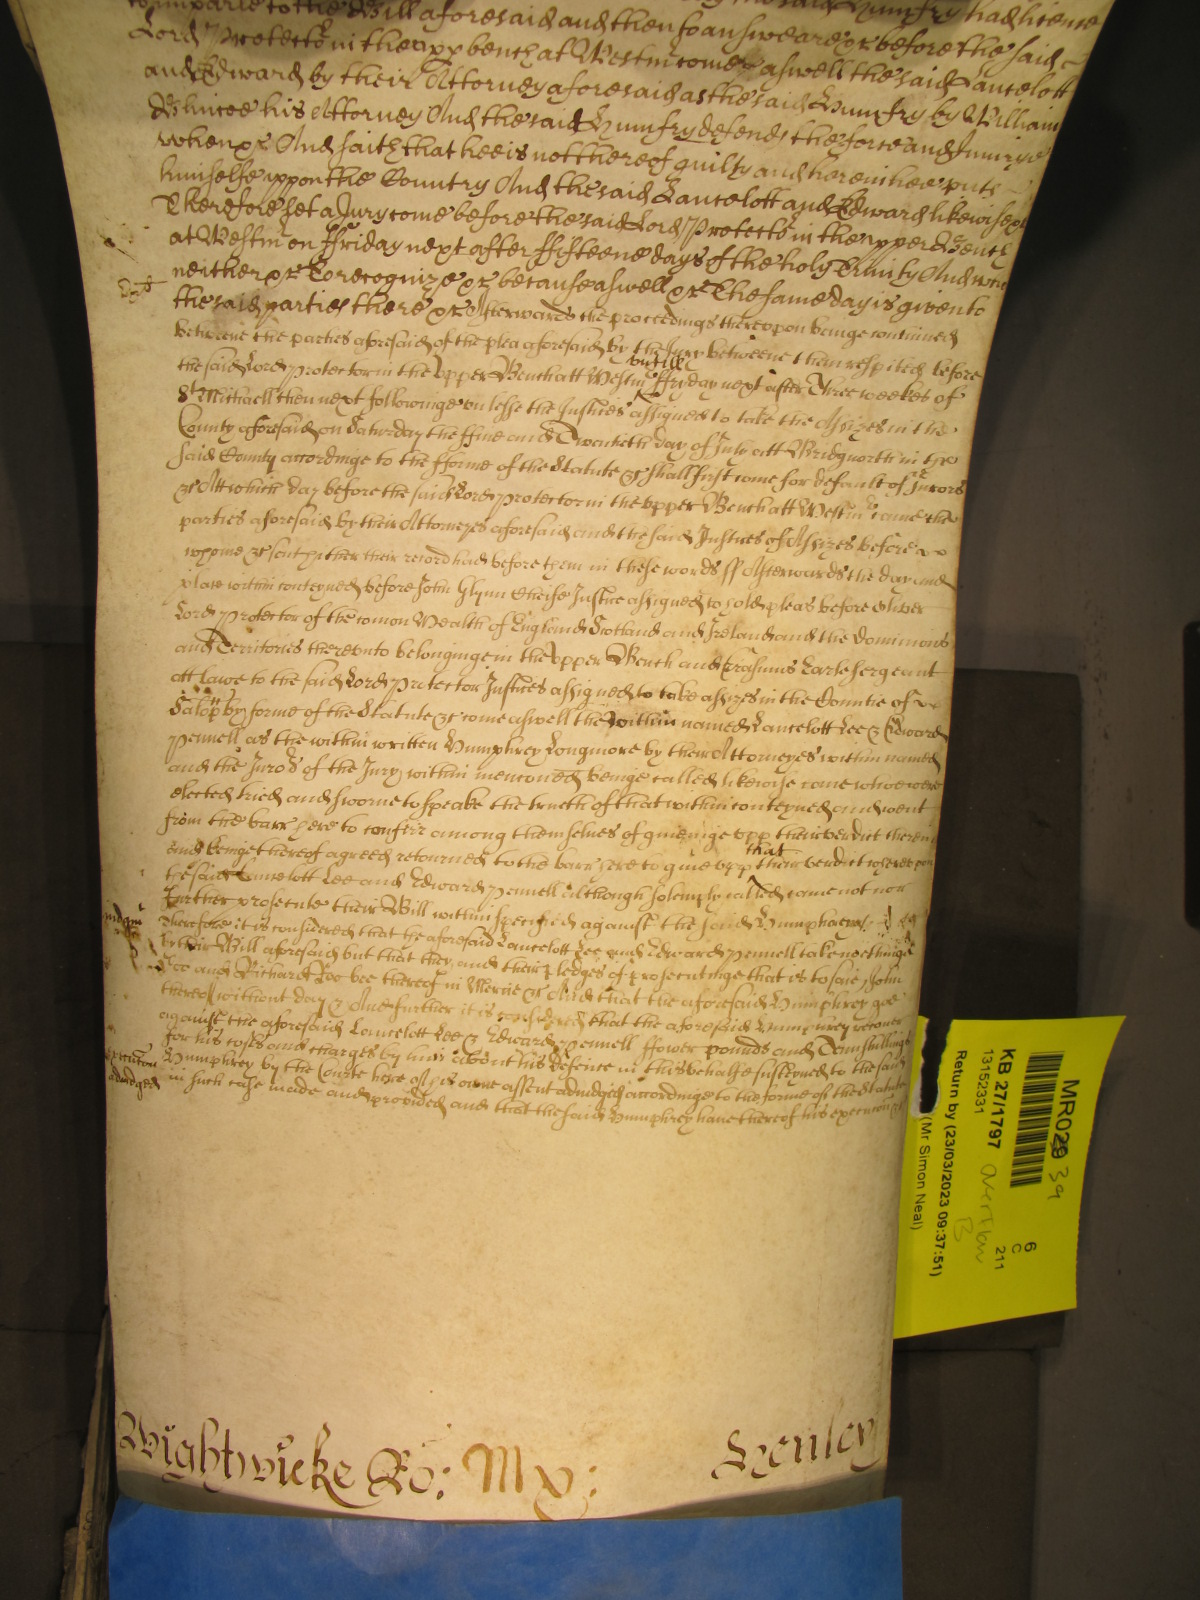 to imparle to the Bill aforesaid and then to answeare &c before the said
Lord Protector in the upp bench at Westm come aswell the said Lancelott
and Edward by their Attorney aforesaid as the said Humfry by William
his Attorney And the said Humfry defends the force and Iniurye
when &c And saith that hee is not thereof guilty and herein hee puts
himselfe uppon the Country And the said Lancelott and Edward likewise &c
Therefore let a Jury come before the said Lord Protector in the upper Bench
at Westm on ffriday next after ffifteene dayes of the holy Trinity And who
neither &c To recognize &c because aswell &c The same day is given to
the said parties there &c Afterwards the proceedings thereupon beinge continued
betweene the parties aforesaid of the plea aforesaid by the Jury betweene them respited before
the said Lord Protector in the Upper Bench att Westm untill ffryday next after Three weekes of
St Michaell then next followinge unlesse the Justices assigned to take the Assizes in the
County aforesaid on Saturday the ffive and Twentieth day of July att Bridgnorth in the
said County accordinge to the fforme of the Statute &c shall first come for default of Jurors
&c Att which day before the said Lord Protector in the Upper Bench att Westm came the
parties aforesaid by their Attorneyes aforesaid and the said Justices of Assizes before
whome &c sent hither their record had before them in these words ss Afterwards the day and
place within conteyned before John Glynn Cheife Justice assigned to hold pleas before Oliver
Lord Protector of the Comon Wealth of England Scotland and Ireland and the Dominions
and Territories thereunto belonginge in the Upper Bench and Erasmus Earle Sergeant
att Lawe to the said Lord Protector Justices assigned to take assizes in the Countie of
Salop by forme of the Statute &c come aswell the within named Lancelott Lee & Edward
Pennell as the within written Humphrey Longmore by their Attorneyes within named
and the Jurors of the Jury within menconed beinge called likewise come who were
elected tried and sworne to speake the trueth of that within conteyned and went
from the barr here to conferr among themselves of giveinge upp their verdict therein
and beinge thereof agreed returned to the barr here to give upp that their verdict whereupon
the said Lancelott Lee and Edward Pennell although solemply called came not nor
further prosecute their Bill within specified against the said Humphrey
Therefore it is considered that the aforesaid Lancelott Lee and Edward Pennell take nothinge
by their Bill aforesaid but that they and their pledges of prosecutinge that is to saie John
Doe and Richard Roe bee thereof in Mercie &c And that the aforesaid Humphrey goe
thereof without day &c And further it is considered that the aforesaid Humphrey recover
against the aforesaid Lancelott Lee & Edward Pennell ffower pounds and Tenn shillings
for his costs and charges by him about his defence in this behalfe susteyned to the said
Humphrey by the Courte here of his owne assent adiudged accordinge to the forme of the Statute
in such case made and provided and that the said Humphrey have thereof his execucon &c
execucon
adiudged
Wightwicke Ro: Mx: Henley
MR029 39
KB 27/1797
13152331
overflow
B
6
C
211
Return by (23/03/2023 09:37:51)
(Mr Simon Neal)